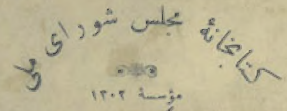 کتابخانهٔ مجلس شورای ملی
مؤسسهٔ ۱۳۰۲